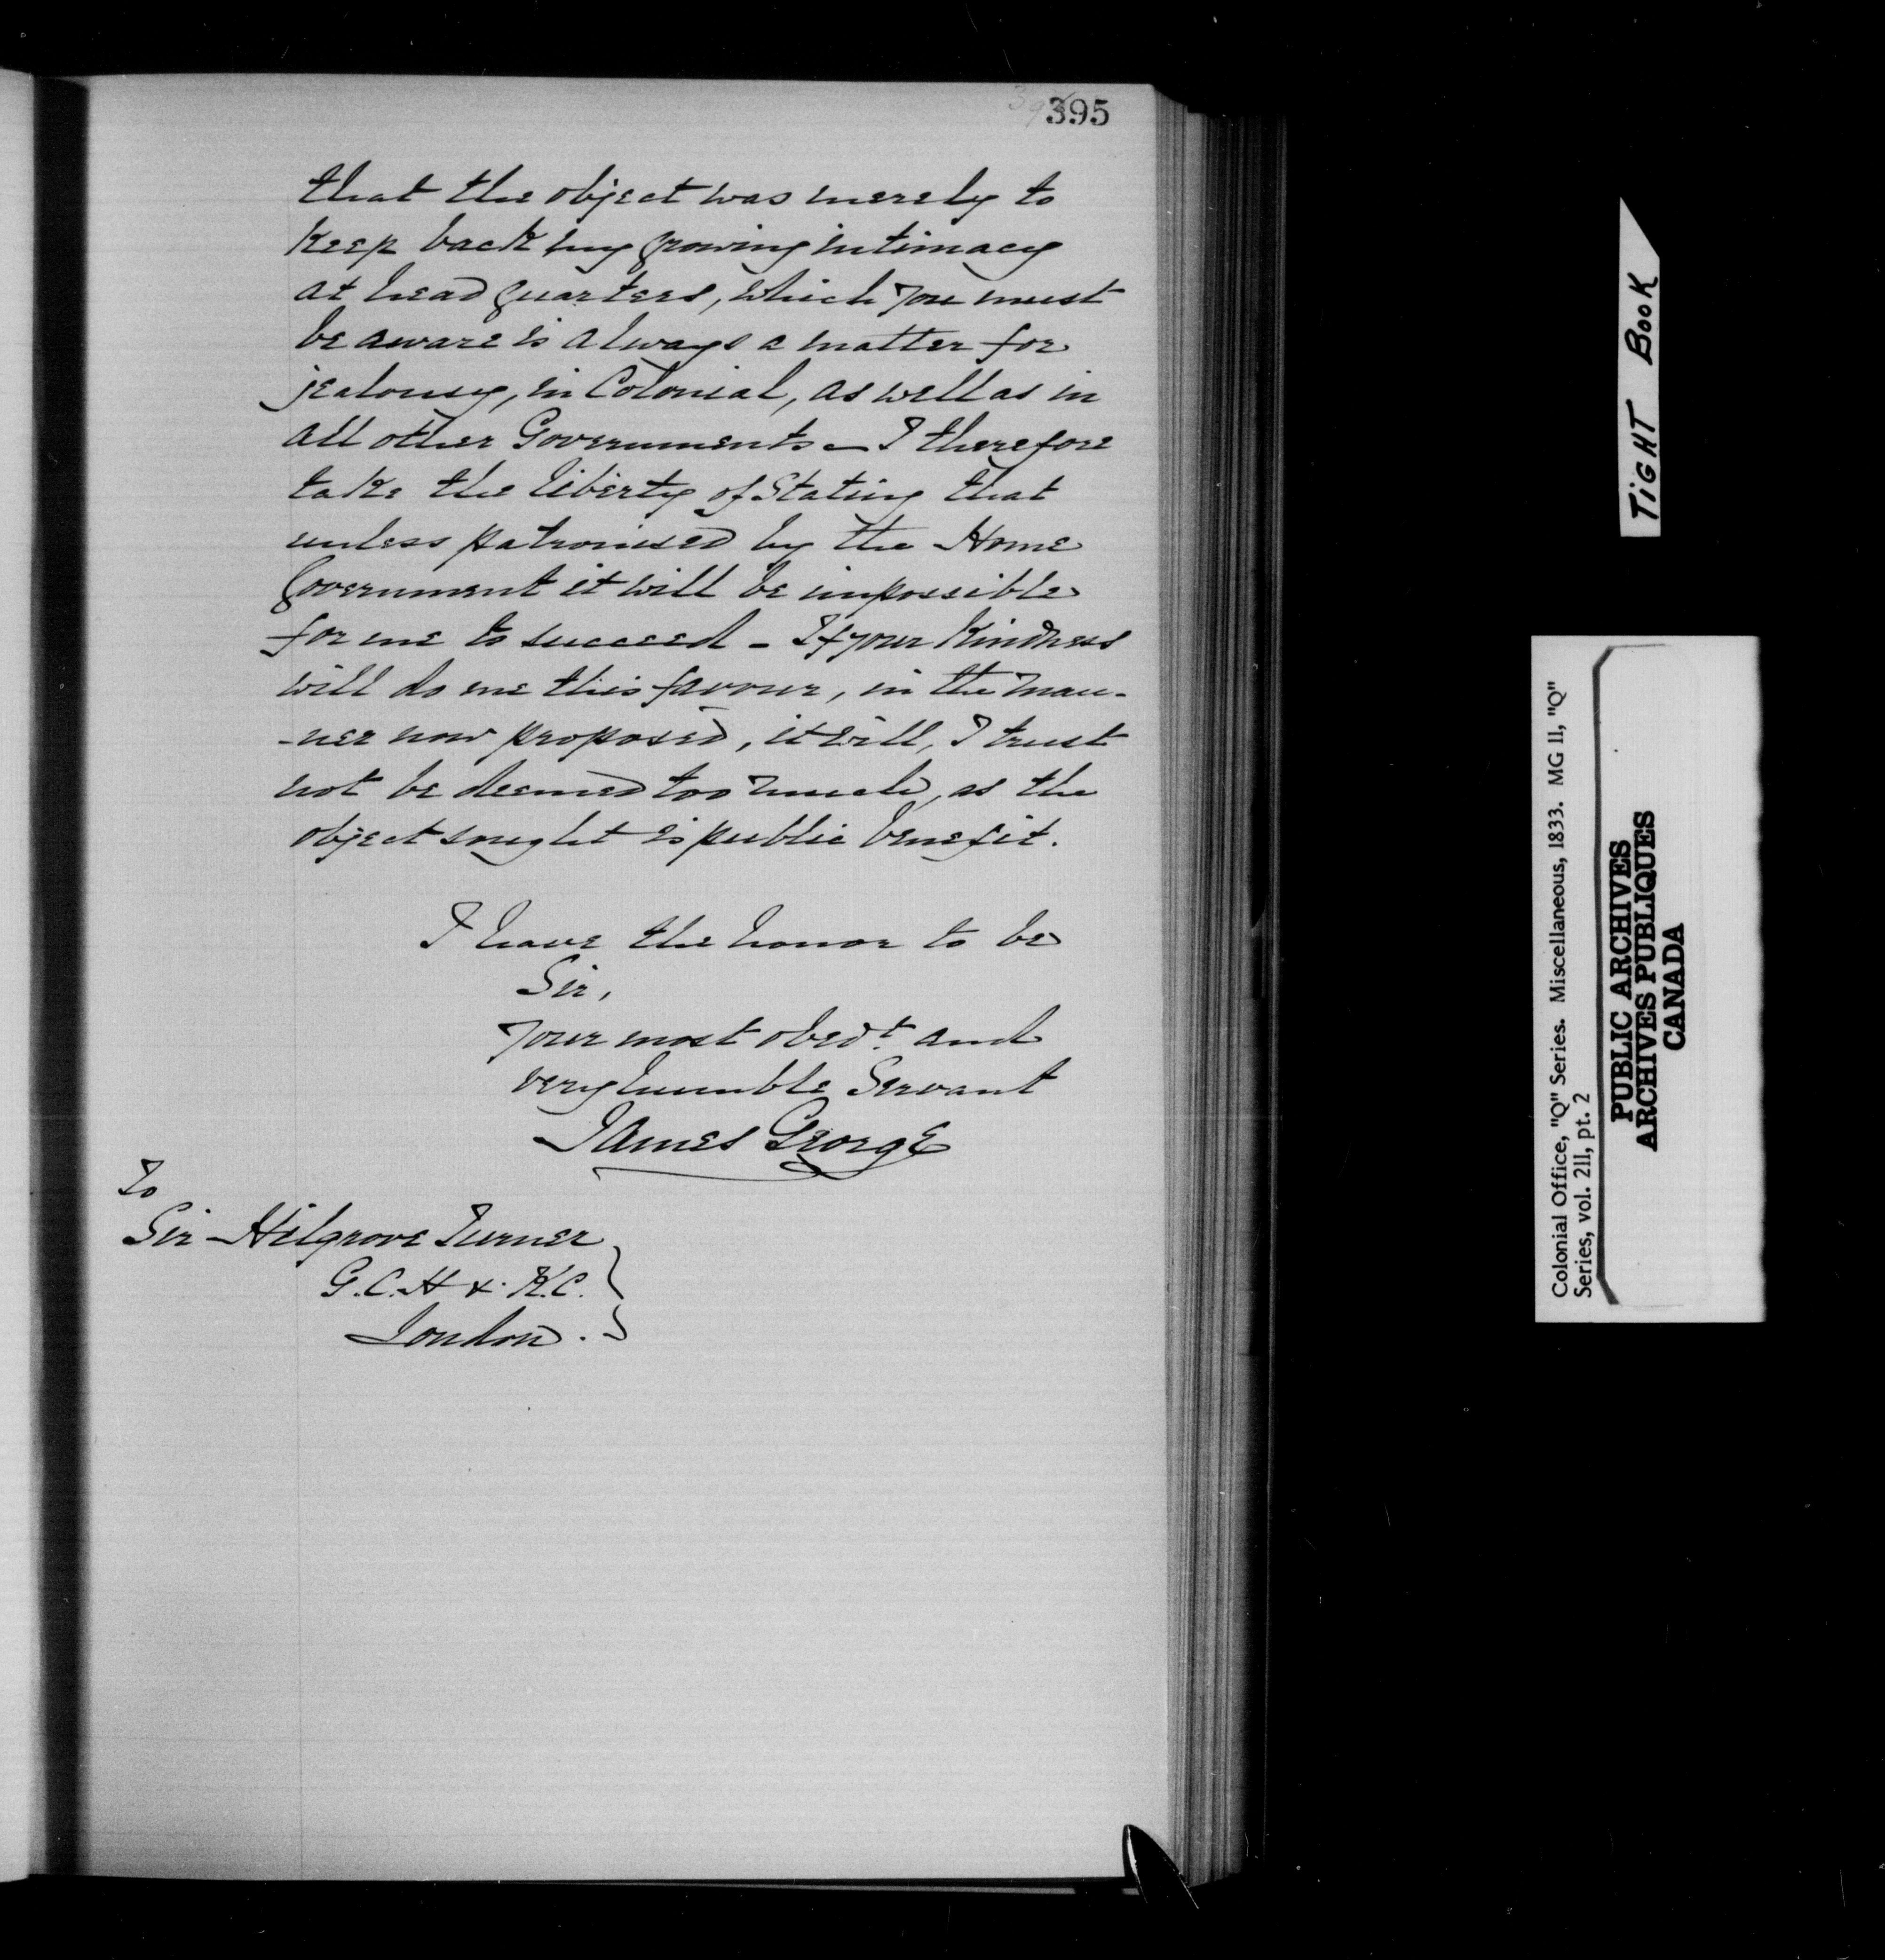 395
that the object was merely to
keep back my growing intimacy
at head quarters, which you must
be aware is always a matter for
jealousy, in Colonial, as well as in
all other Governments – I therefore
take the liberty of Stating that
unless patronised by the Home
Government it will be impossible
for me to succeed – If your kindness
will do me this favour, in the man-
-ner now proposed, it will, I trust
not be deemed too much, as the
object sought is public benefit.
I have the honor to be
Sir,
Your most obedt. and
very humble Servant
James George
To
Sir Hilgrove Turner
G.C.H & K.C.
London.
TIGHT BOOK
Colonial Office, "Q" Series. Miscellaneous, 1833. MG 11, "Q"
Series, vol. 211, pt. 2
PUBLIC ARCHIVES
ARCHIVES PUBLIQUES
CANADA